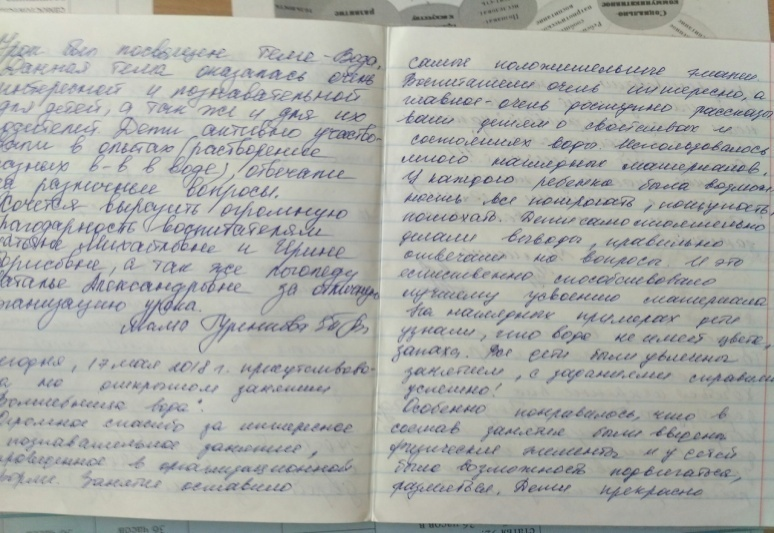 Урок был посвящен теме - Вода.
Данная тема оказалась очень
интересной и познавательной
для детей, а так же и для их
родителей. Дети активно участво-
вали в опытах (растворение
разных в-в в воде), отвечали
на различные вопросы.
Хочется выразить огромную
благодарность воспитателям
Михайловне и Ирине
Борисовне, а так же логопеду
Наталье Александровне за отличную
организацию урока.
Мама
Сегодня, 17 мая 2018 г. присутствова-
ла на открытом занятии
"Волшебница вода".
Огромное спасибо за интересное
и познавательное занятие,
проведенное в организационной
форме. Занятие оставило
самые положительные эмоции.
Воспитатели очень интересно, а
главное - очень доступно рассказы
вали детям о свойствах и
состояниях воды. Использовалось
много наглядных материалов.
И у каждого ребенка была возмож
ность все потрогать, пощупать,
поблочать. Дети самостоятельно
делали выводы, правильно
отвечали на вопросы. И это
естественно способствовало
лучшему усвоению материала
На наглядных примерах дети
узнали, что вода не имеет цвета,
запаха. Все дети были увлечены
занятием, с заданиями справились
успешно!
Особенно понравилось, что в
состав занятия были введены
физические элементы и у детей
было возможность подвигаться,
размяться. Дети прекрасно
Социально
коммуникативное